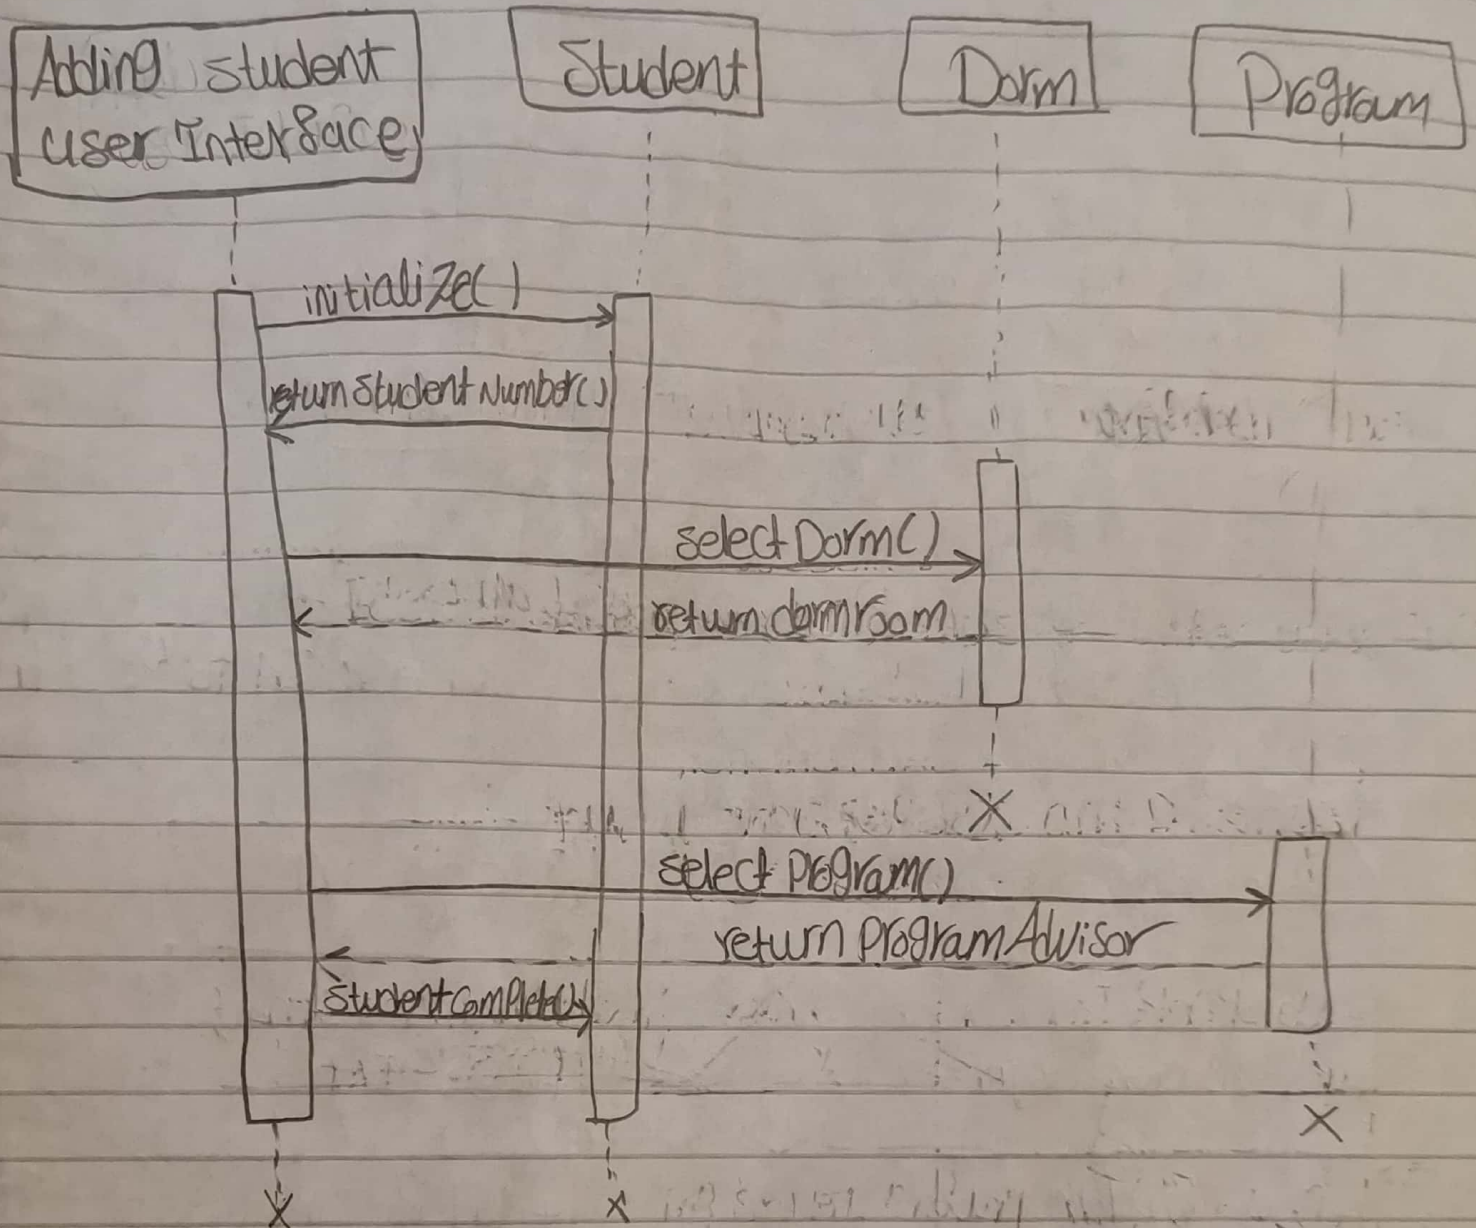 Adding student
user Interface
Student
Dorm
Program
initialize()
return Student Number()
select Dorm()
return dormroom
select Program()
return Program Advisor
Student complete()